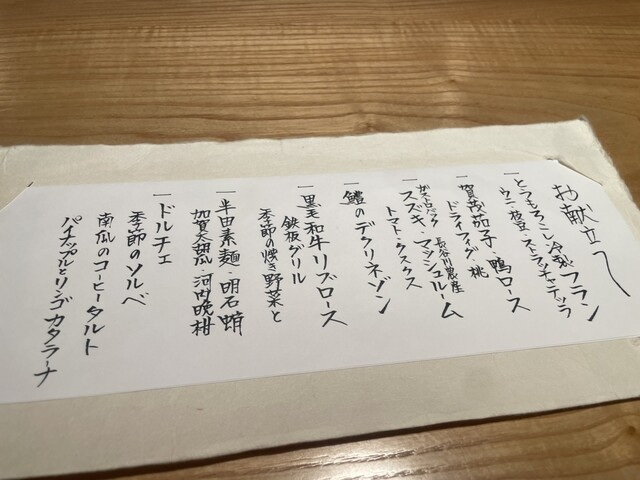 お献立て
一 とうもろこし冷製フラン
ウニ・枝豆・ストラッチャテッラ
一 賀茂茄子・鴨ロース
ドライフィグ・桃
ガストロバック 長谷川農産
一 スズキ・マッシュルーム
トマト・クスクス
一 鱧のデクリネゾン
一 黒毛和牛リブロース
鉄板グリル
季節の焼き野菜と
一 半田素麺・明石蛸
加賀太胡瓜・河内晩柑
一 ドルチェ
季節のソルベ
南瓜のコーヒータルト
パイナップルとリンゴカタラーナ